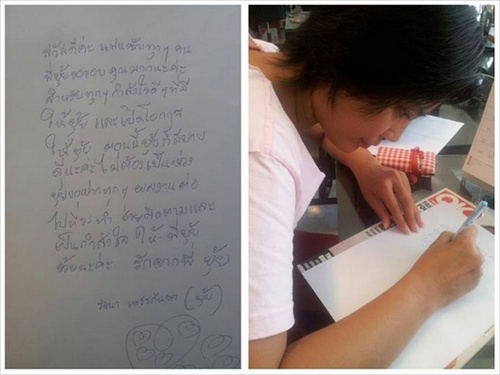 สวัสดีค่ะ แฟนคลับทุกๆ คน
พี่ยุ้ยขอขอบคุณมากนะค่ะ
สำหรับทุกๆ กำลังใจดีๆ ที่มี
ให้ยุ้ย และเปิดโอกาส
ให้ยุ้ย ตอนนี้ยุ้ยก็สบาย
ดีนะค่ะ ไม่ต้องเป็นห่วง
ยุ้ยขอฝากทุกๆ ผลงานต่อ
ไปที่จะทำ ช่วยติดตามและ
เป็นกำลังใจ ให้ พี่ยุ้ย
ด้วยนะค่ะ รักมากพี่ ยุ้ย
(ยุ้ย)